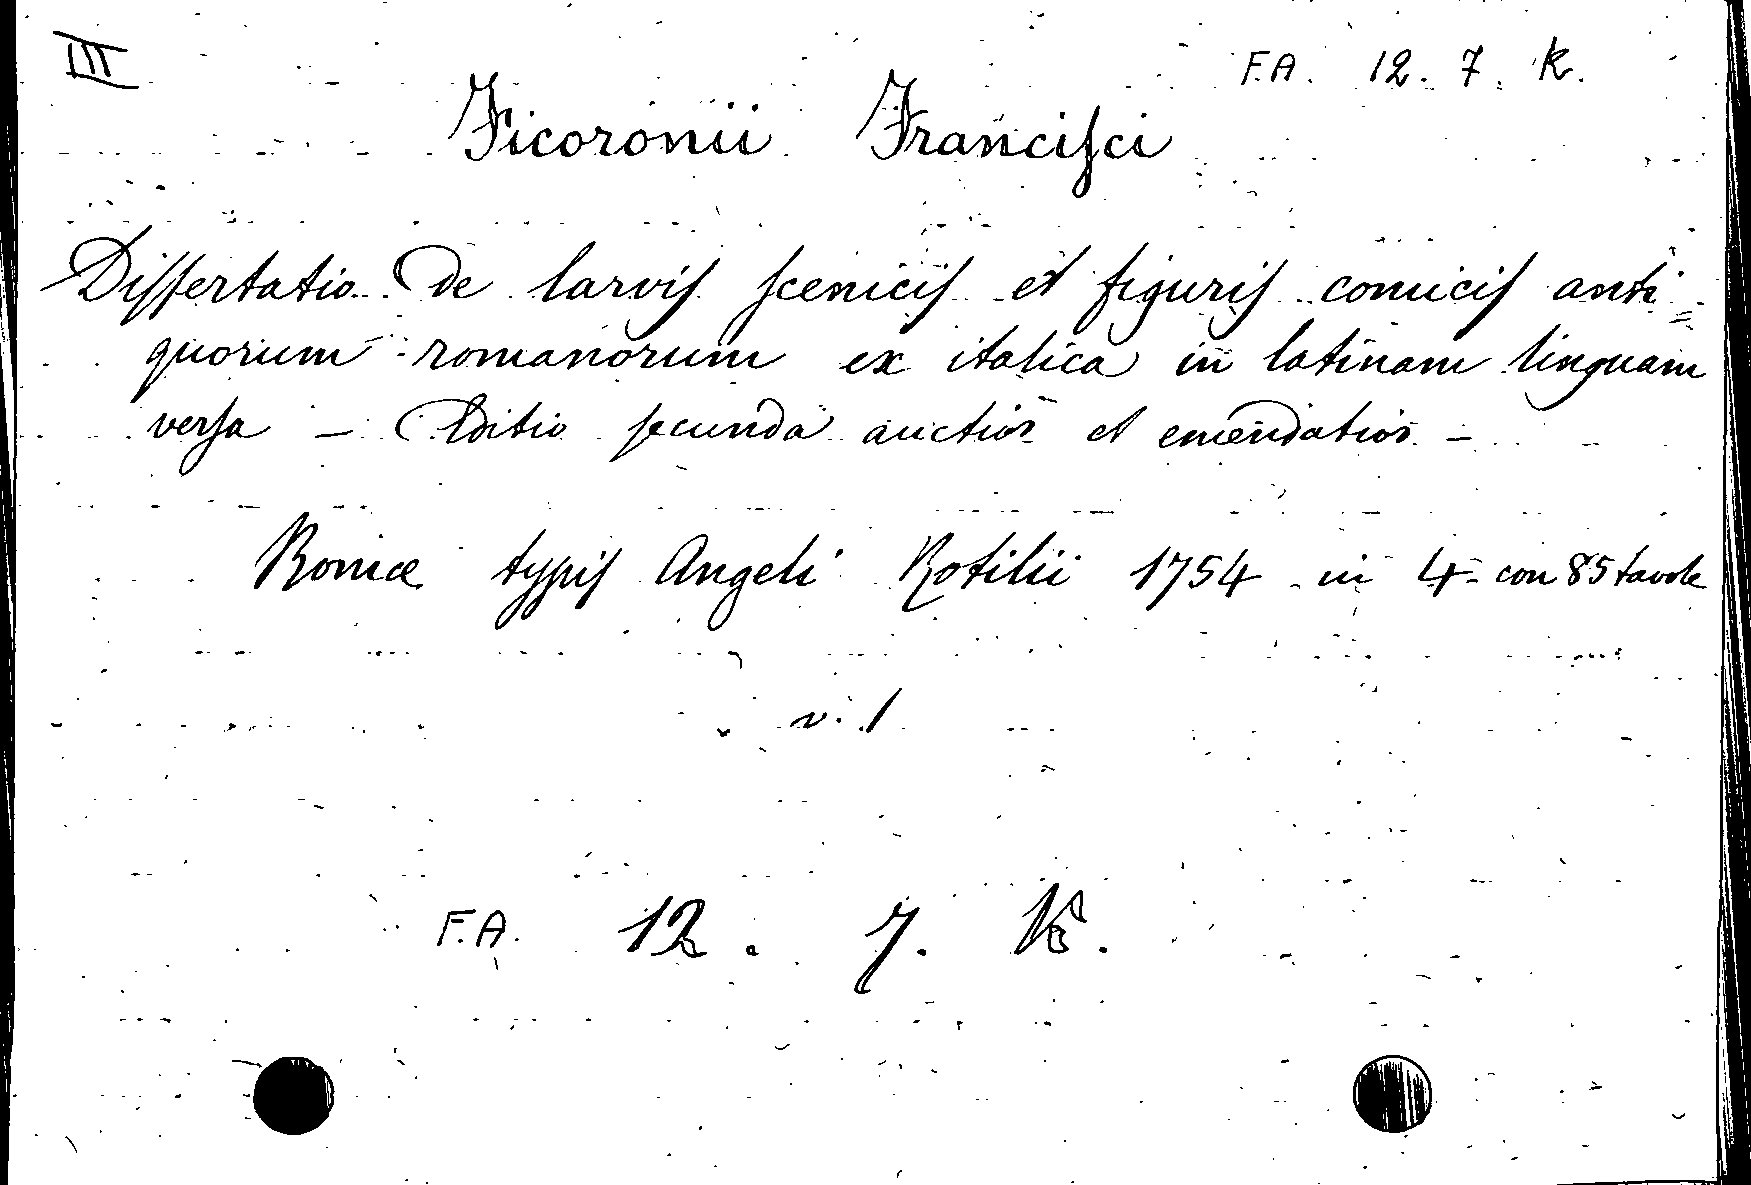 III
F.A. 12. 7. K.
Ficoronii Francisci
Dissertatio De larvis scenicis et figuris comicis anti=
quorum romanorum ex italica in latinam linguam
versa - Editio secunda auctior et emendatior -
Romæ typis Angeli Rotilii 1754 in 4- con 85 tavole
v. 1
F.A. 12. 7. K.